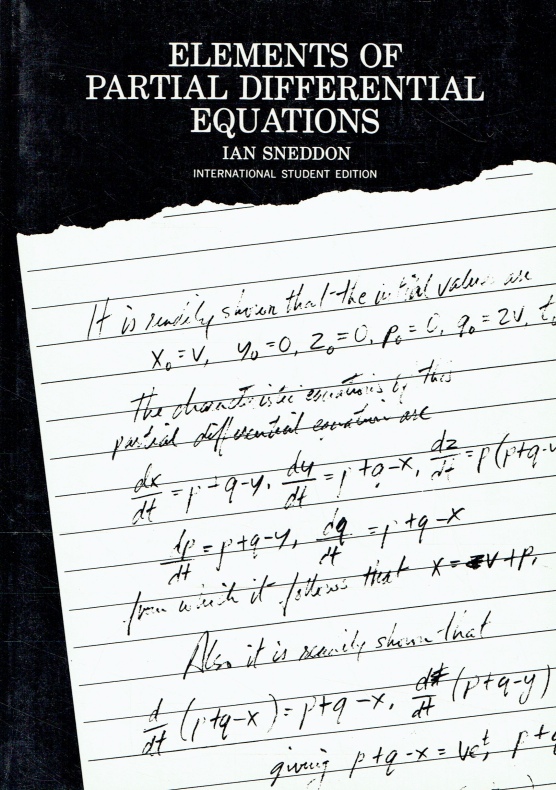 ELEMENTS OF
PARTIAL DIFFERENTIAL
EQUATIONS
IAN SNEDDON
INTERNATIONAL STUDENT EDITION
It is readily shown that the initial values are
x₀ = v, y₀ = 0, z₀ = 0, p₀ = 0, q₀ = 2v, t₀
The characteristic equations of this
partial differential equation are
dx/dt = p+q-y, dy/dt = p+q-x, dz/dt = p(p+q-y
dp/dt = p+q-y, dq/dt = p+q-x
from which it follows that x = v+p,
Also it is readily shown that
d/dt (p+q-x) = p+q-x, d/dt (p+q-y)
giving p+q-x = veᵗ, p+q